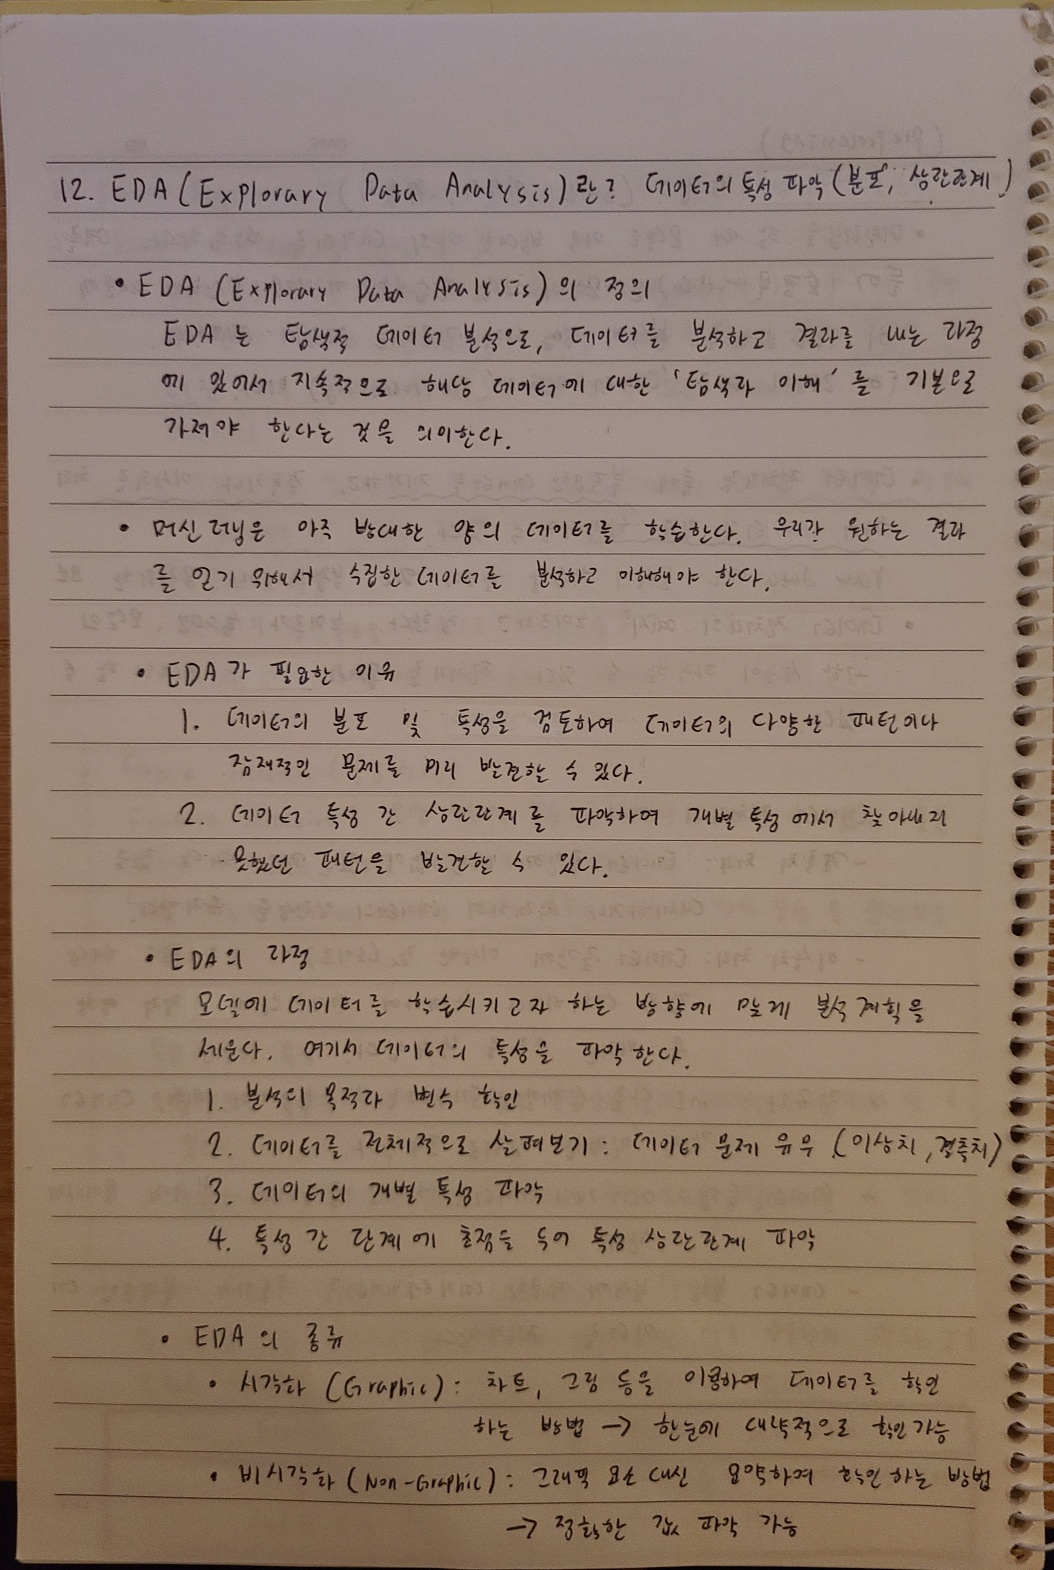 12. EDA(Explorary Data Analysis)란? 데이터의 특성 파악(분포, 상관관계)
• EDA (Explorary Data Analysis)의 정의
EDA는 탐색적 데이터 분석으로, 데이터를 분석하고 결과를 내는 과정
에 있어서 지속적으로 해당 데이터에 대한 '탐색과 이해'를 기본으로
가져야 한다는 것을 의미한다.
• 머신러닝은 아주 방대한 양의 데이터를 학습한다. 우리가 원하는 결과
를 얻기 위해서 수집한 데이터를 분석하고 이해해야 한다.
• EDA가 필요한 이유
1. 데이터의 분포 및 특성을 검토하여 데이터의 다양한 패턴이나
잠재적인 문제를 미리 발견할 수 있다.
2. 데이터 특성 간 상관관계를 파악하여 개별 특성에서 찾아내지
못했던 패턴을 발견할 수 있다.
• EDA의 과정
모델에 데이터를 학습시키고자 하는 방향에 맞게 분석 계획을
세운다. 여기서 데이터의 특성을 파악한다.
1. 분석의 목적과 변수 확인
2. 데이터를 전체적으로 살펴보기 : 데이터 문제 유무 (이상치, 결측치)
3. 데이터의 개별 특성 파악
4. 특성 간 단계에 초점을 두어 특성 상관관계 파악
• EDA의 종류
• 시각화 (Graphic) : 차트, 그림 등을 이용하여 데이터를 확인
하는 방법 → 한눈에 대략적으로 확인 가능
• 비시각화 (Non-Graphic) : 그래픽 요소 대신 요약하여 확인하는 방법
→ 정확한 값 파악 가능